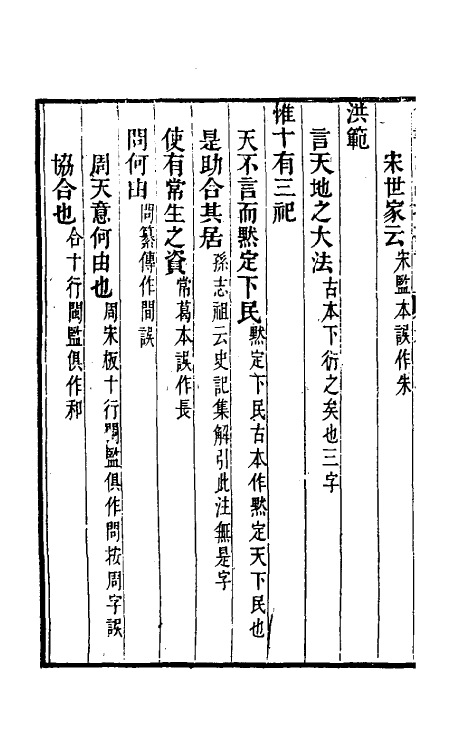 宋世家云宋監本誤作朱
洪範
言天地之大法古本下衍之矣也三字
惟十有三祀
天不言而默定下民默定下民古本作默定天下民也
是助合其居孫志祖云史記集解引此注無是字
使有常生之資常葛本誤作長
問何由問纂傳作間誤
周天意何由也周宋板十行閩監俱作問按周字誤
協合也合十行閩監俱作和